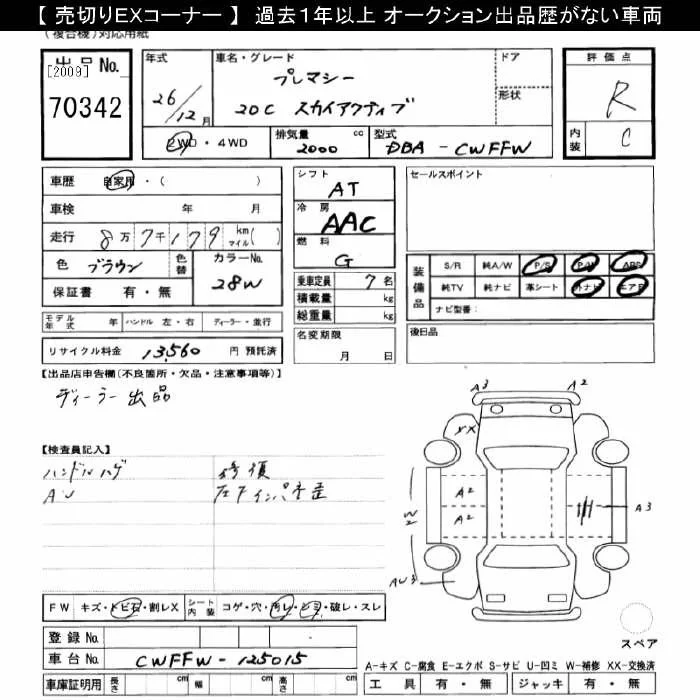 【 売切りEXコーナー 】 過去１年以上 オークション出品歴がない車両
(複合機)対応用紙
出品No.
[2009]
70342
年式 26/12月
車名・グレード プレマシー
20C スカイアクティブ
ドア
形状
評価点 R
内装 C
2WD・4WD
排気量 2000 cc
型式 DBA - CWFFW
車歴 自家用・( )
車検 年 月
走行 8万7千179 km マイル( )
色 ブラウン 色替 カラーNo. 28W
保証書 有・無
モデル年式 年 ハンドル 左・右 ディーラー・並行
リサイクル料金 13,560 円 預託済
シフト AT
冷房 AAC
燃料 G
乗車定員 7 名
積載量 kg
総重量 kg
名変期限 月 日
セールスポイント
装備品
S/R 純A/W P/S P/W ABS
純TV 純ナビ 革シート 外ナビ エアB
ナビ型番:
後日品
【出品店申告欄(不良箇所・欠品・注意事項等)】
ディーラー出品
【検査員記入】
ハンドルハゲ 修復
AW
A3 A2
XX
A2
A2
W2
A3
AW3
FW キズ・トビ石・割レX シート内装 コゲ・穴・汚レ・シミ・破レ・スレ
登録No.
車台No. CWFFW - 125015
車庫証明用 長さ cm 幅 cm 高さ cm
スペア
A-キズ C-腐食 E-エクボ S-サビ U-凹ミ W-補修 XX-交換済
工具 有・無 ジャッキ 有・無